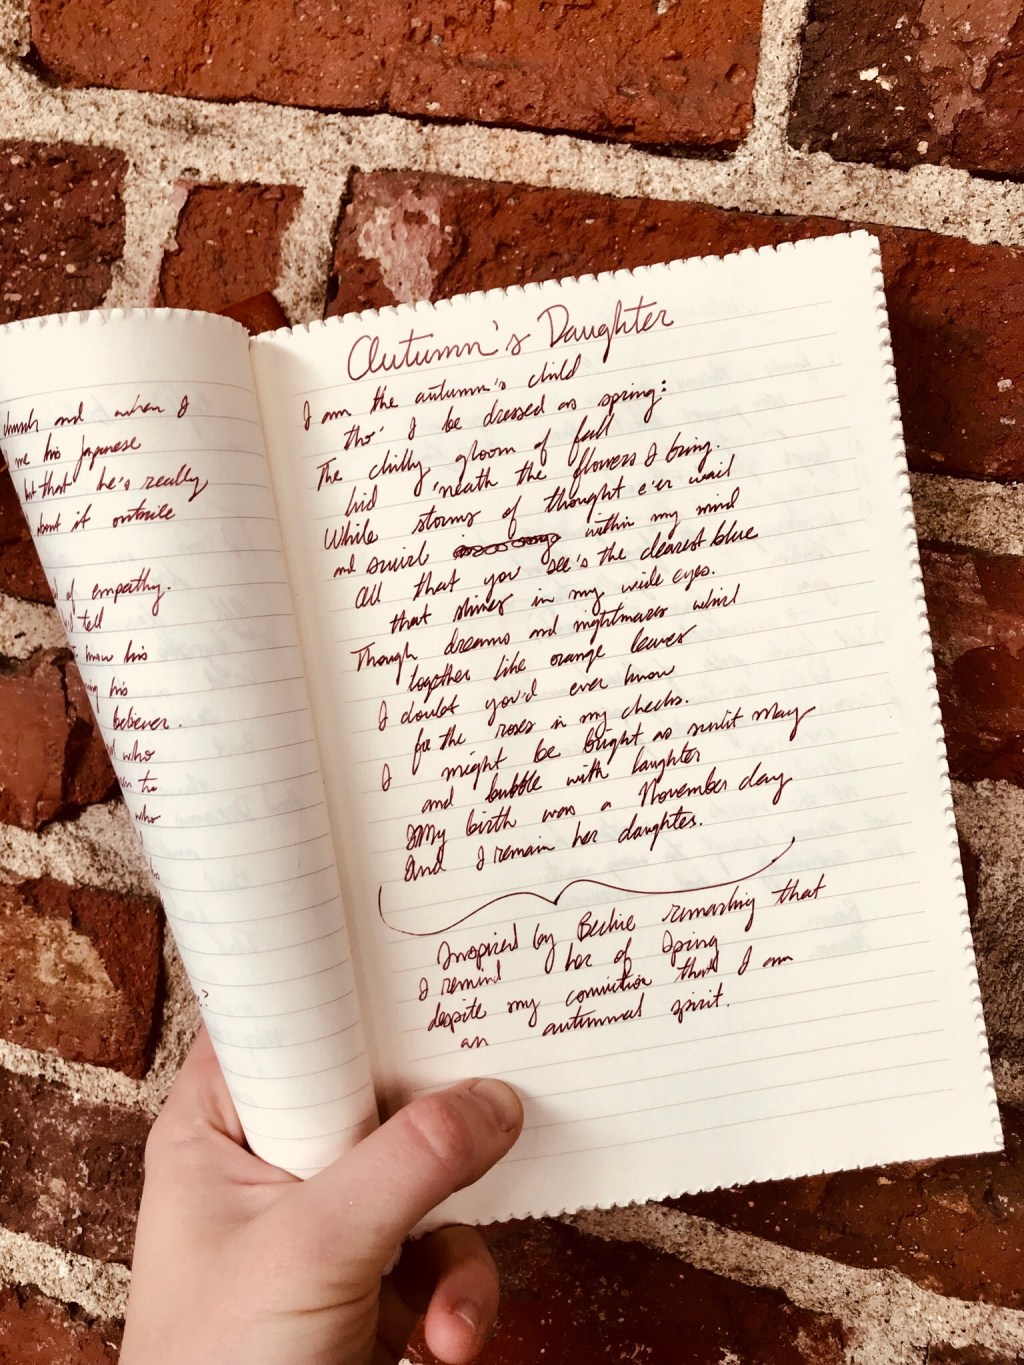 church and when I
me his Japanese
but that he's really
about it outside
of empathy.
tell
know his
his
believer.
who
to
who
Autumn's Daughter
I am the autumn's child
tho' I be dressed as spring:
The chilly gloom of fall
hid 'neath the flowers I bring.
While storms of thought e'er wail
and swirl within my mind
All that you see's the clearest blue
that shines in my wide eyes.
Though dreams and nightmares whirl
together like orange leaves
I doubt you'd ever know
for the roses in my cheeks.
I might be bright as sunlit May
and bubble with laughter
My birth was a November day
And I remain her daughter.
Inspired by Beckie remarking that
I remind her of Spring
despite my conviction that I am
an autumnal spirit.